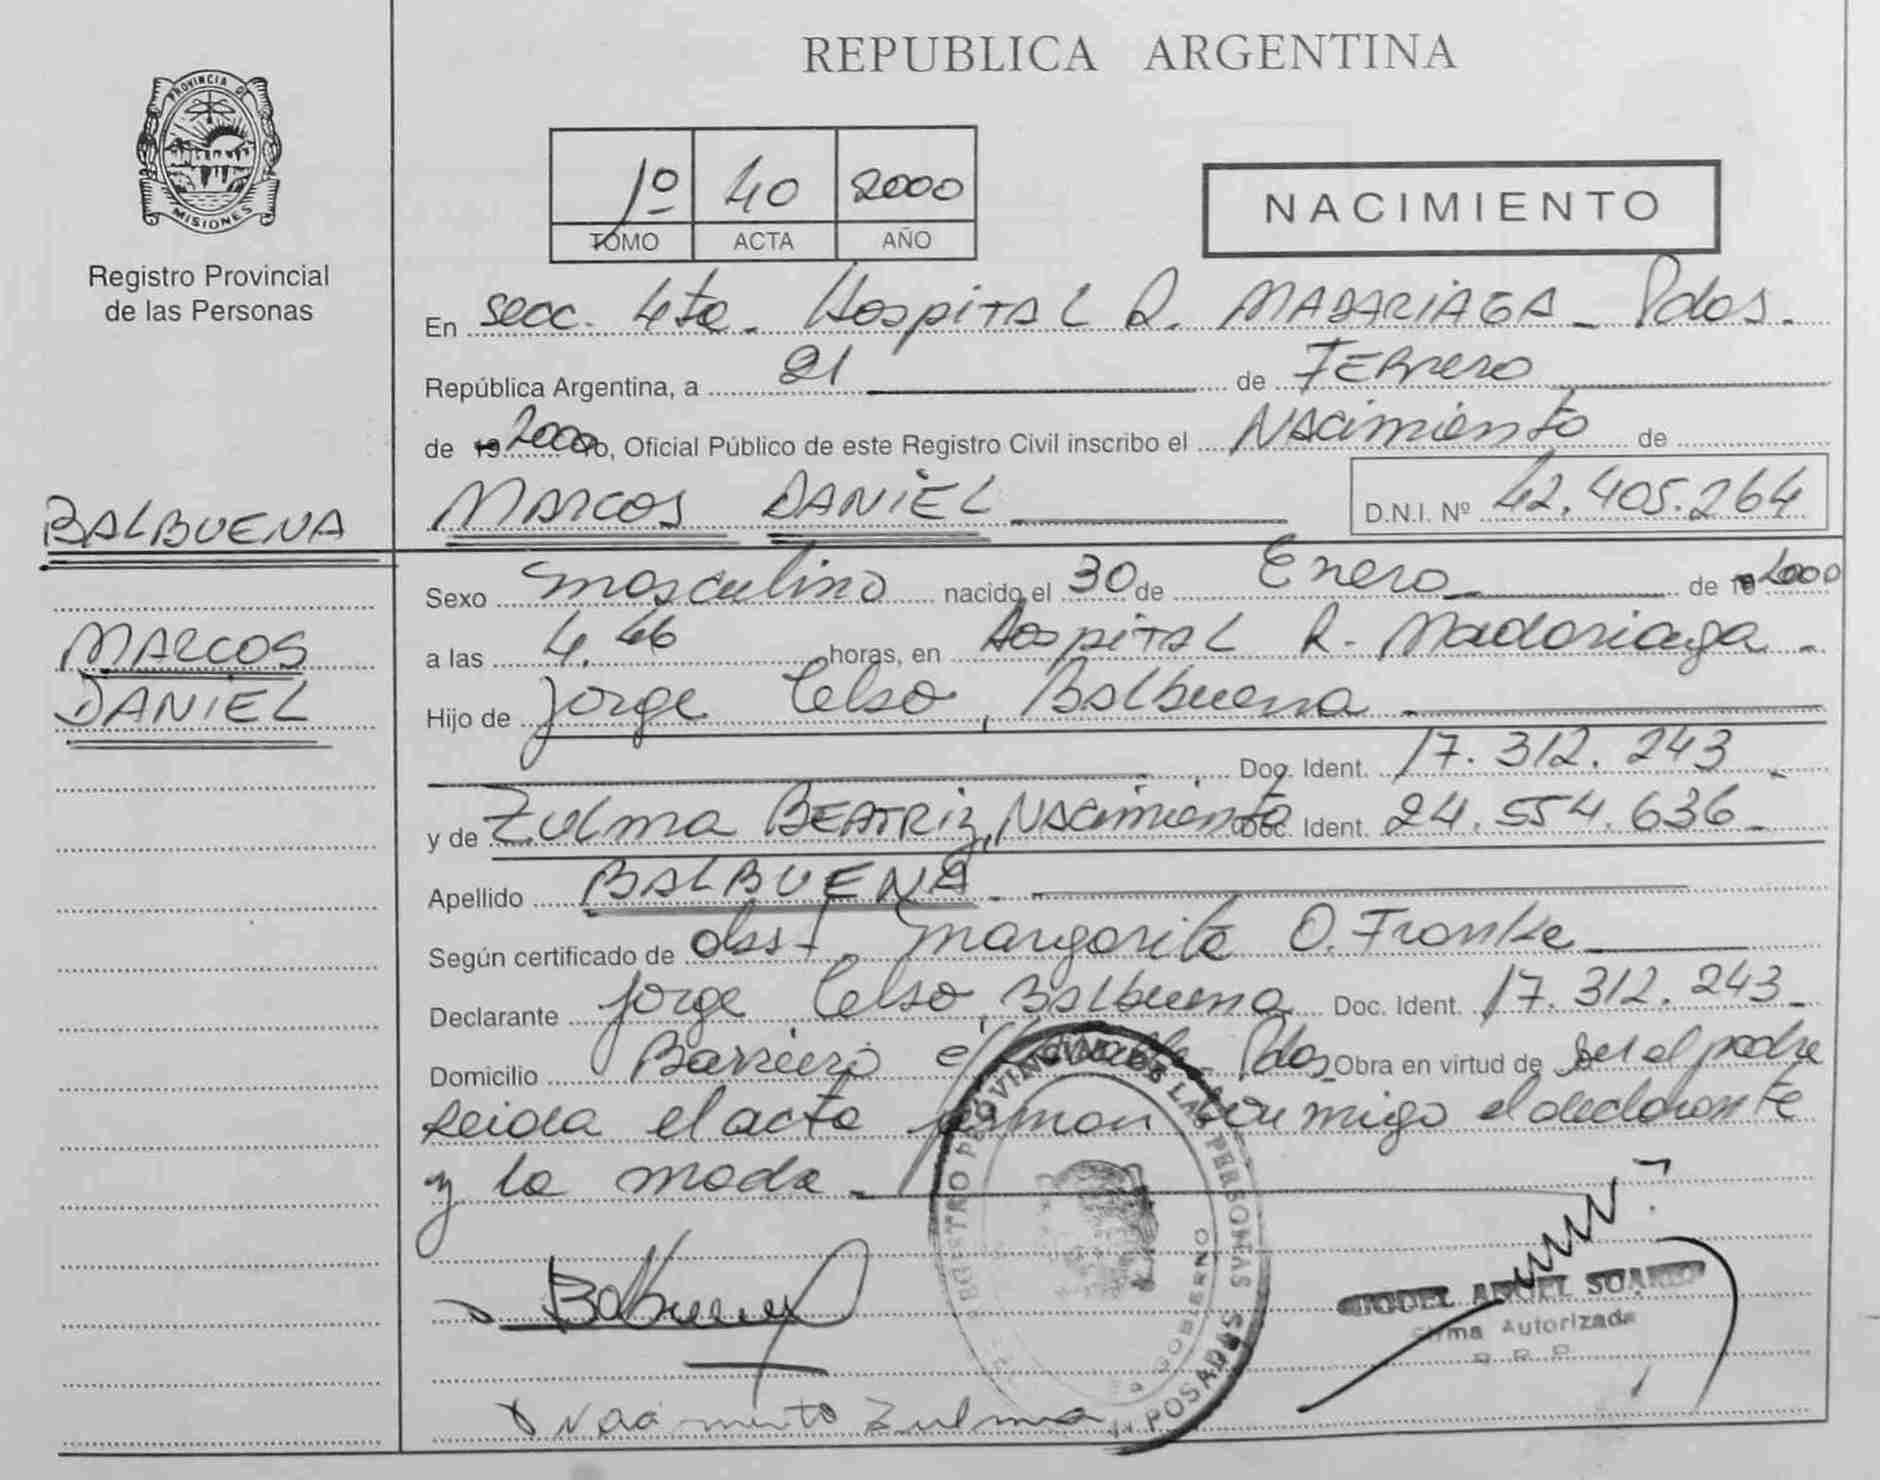 REPUBLICA ARGENTINA
PROVINCIA DE
MISIONES
Registro Provincial
de las Personas
1º 40 2000
TOMO ACTA AÑO
NACIMIENTO
En secc. 4ta. Hospital R. MADARIAGA - Pdas.
República Argentina, a 21 de Febrero
de 19 2000 Yo, Oficial Público de este Registro Civil inscribo el Nacimiento de
BALBUENA
MARCOS DANIEL D.N.I. Nº 42.405.264
Sexo masculino nacido el 30 de Enero de 19 2000
MARCOS
a las 4.46 horas, en Hospital R. Madariaga -
DANIEL
Hijo de Jorge Celso, Balbuena
Doc. Ident. 17.312.243
y de Zulma BEATRIZ, Nacimiento Doc. Ident. 24.554.636
Apellido BALBUENA
Según certificado de obst. Margarita O. Franke
Declarante Jorge Celso, Balbuena Doc. Ident. 17.312.243
Domicilio Barrio Pdas Obra en virtud de ser el padre
Leida el acta firman conmigo el declarante
y la madre
REGISTRO PROVINCIAL DE LAS PERSONAS
GOBIERNO
POSADAS
Balbuena
SUAREZ
Firma Autorizada
R.P.P.
Nacimiento Zulma